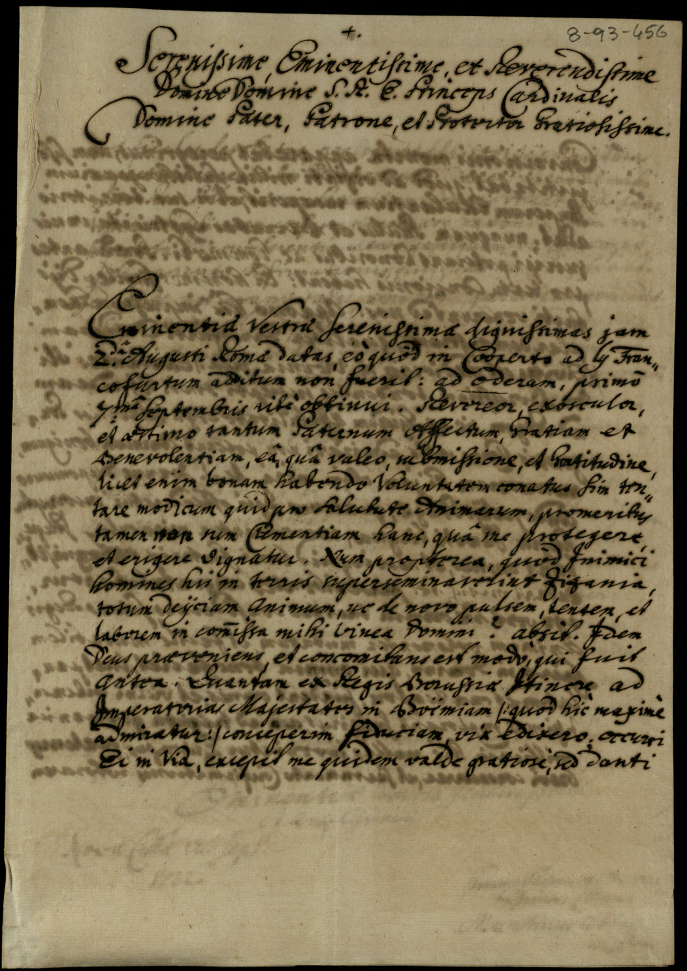 +.
8-93-456
Serenissime, Eminentissime, et Reverendissime
Domine Domine S. R. E. Princeps Cardinalis
Domine Pater, Patrone, et Protector Gratiosissime.
Eminentiæ Vestræ Serenissimæ dignissimas jam
2.a Augusti Romæ datas, eò quòd in Cooperto ad Fran„
cofurtum additum non fuerit: ad Oderam, primò
7.ma Septembris ritè obtinui. Revereor, exosculor,
et æstimo tantum Paternum Affectum, Gratiam et
Benevolentiam, eâ, quâ valeo, submissione, et Gratitudine,
licet enim bonam habendo Voluntatem conatus sim ten„
tare modicum quid pro salute Animarum, promeritus
tamen non sum Clementiam hanc, quâ me protegere,
et erigere dignatur. Num propterea, quòd Inimici
homines hîc in terris superseminaverint Zizania,
totum dejiciam Animum, ne de novo pulsem, tentem, et
laborem in com̄issa mihi Vinea Domini? absit. Idem
Deus præveniens, et concomitans est modò, qui fuit
antea. Quantam ex Regis Borussiæ Itinere ad
Imperatorias Majestates in Boëmiam /: quod hîc maximè
admiratur :/ conceperim fiduciam, vix edixero. occurri
Ei in Via, excepit me quidem valde gratiosè, sed danti